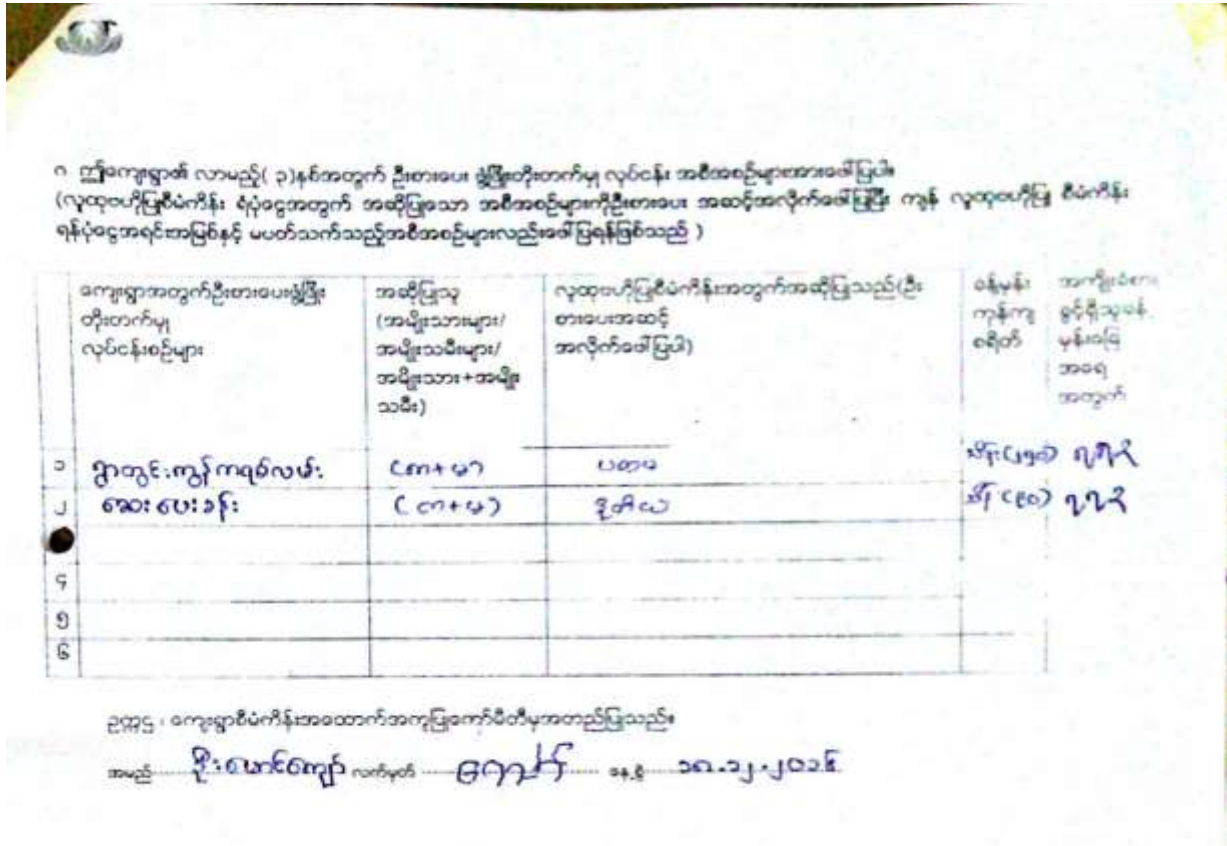 ဂ ဤကျေးရွာ၏ လာမည့်( ၃)နှစ်အတွက် ဦးစားပေး ဖွံ့ဖြိုးတိုးတက်မှု လုပ်ငန်း အစီအစဉ်များအားဖေါ်ပြပါ။
(လူထုဗဟိုပြုစီမံကိန်း ရံပုံငွေအတွက် အဆိုပြုသော အစီအစဉ်များကိုဦးစားပေး အဆင့်အလိုက်ဖေါ်ပြပြီး ကျန် လူထုဗဟိုပြု စီမံကိန်း
ရန်ပုံငွေအရင်းအမြစ်နှင့် မပတ်သက်သည့်အစီအစဉ်များလည်းဖေါ်ပြရန်ဖြစ်သည် )
ကျေးရွာအတွက်ဦးစားပေးဖွံ့ဖြိုး
တိုးတက်မှု
လုပ်ငန်းစဉ်များ
အဆိုပြုသူ
(အမျိုးသားများ/
အမျိုးသမီးများ/
အမျိုးသား+အမျိုး
သမီး)
လူထုဗဟိုပြုစီမံကိန်းအတွက်အဆိုပြုသည်(ဦး
စားပေးအဆင့်
အလိုက်ဖေါ်ပြပါ)
ခန့်မှန်း
ကုန်ကျ
စရိတ်
အကျိုးခံစား
ခွင့်ရှိသူခန့်
မှန်းခြေ
အရေ
အတွက်
၁ ရွာတွင်းကွန်ကရစ်လမ်း (ကာ+မ) ပထမ သိန်း(၂၅၀) ၇၇၃
၂ ဆေးပေးခန်း (ကာ+မ) ဒုတိယ သိန်း(၉၀) ၇၇၃
၄
၅
၆
ဥက္ကဌ ၊ ကျေးရွာစီမံကိန်းအထောက်အကူပြုကော်မီတီမှအတည်ပြုသည်။
အမည် ဦးမောင်ကျော် လက်မှတ် နေ့စွဲ ၁၈.၁၂.၂၀၁၆